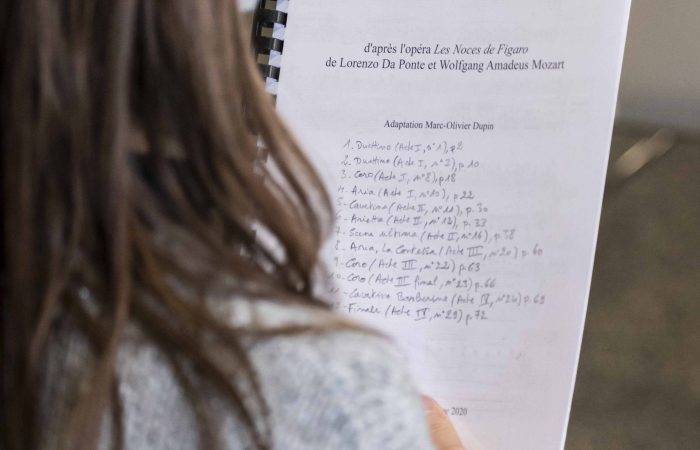 d'après l'opéra Les Noces de Figaro
de Lorenzo Da Ponte et Wolfgang Amadeus Mozart
Adaptation Marc-Olivier Dupin
1- Duettino (Acte I, n°1), p2
2- Duettino (Acte I, n°2), p 10
3- Coro (Acte I, n°8), p18
4- Aria (Acte I, n°10), p.22
5- Cavatina (Acte II, n°11), p. 30
6- Arietta (Acte II, n°12), p. 33
7- Scena ultima (Acte II, n°16), p 38
8- Aria, La Contessa (Acte III, n°20) p. 60
9- Coro (Acte III, n°22) p. 63
10- Coro (Acte III final, n°23) p.66
- Cavatina Barberina (Acte IV, n°24) p. 69
- Finale (Acte IV, n°29) p.72
2020